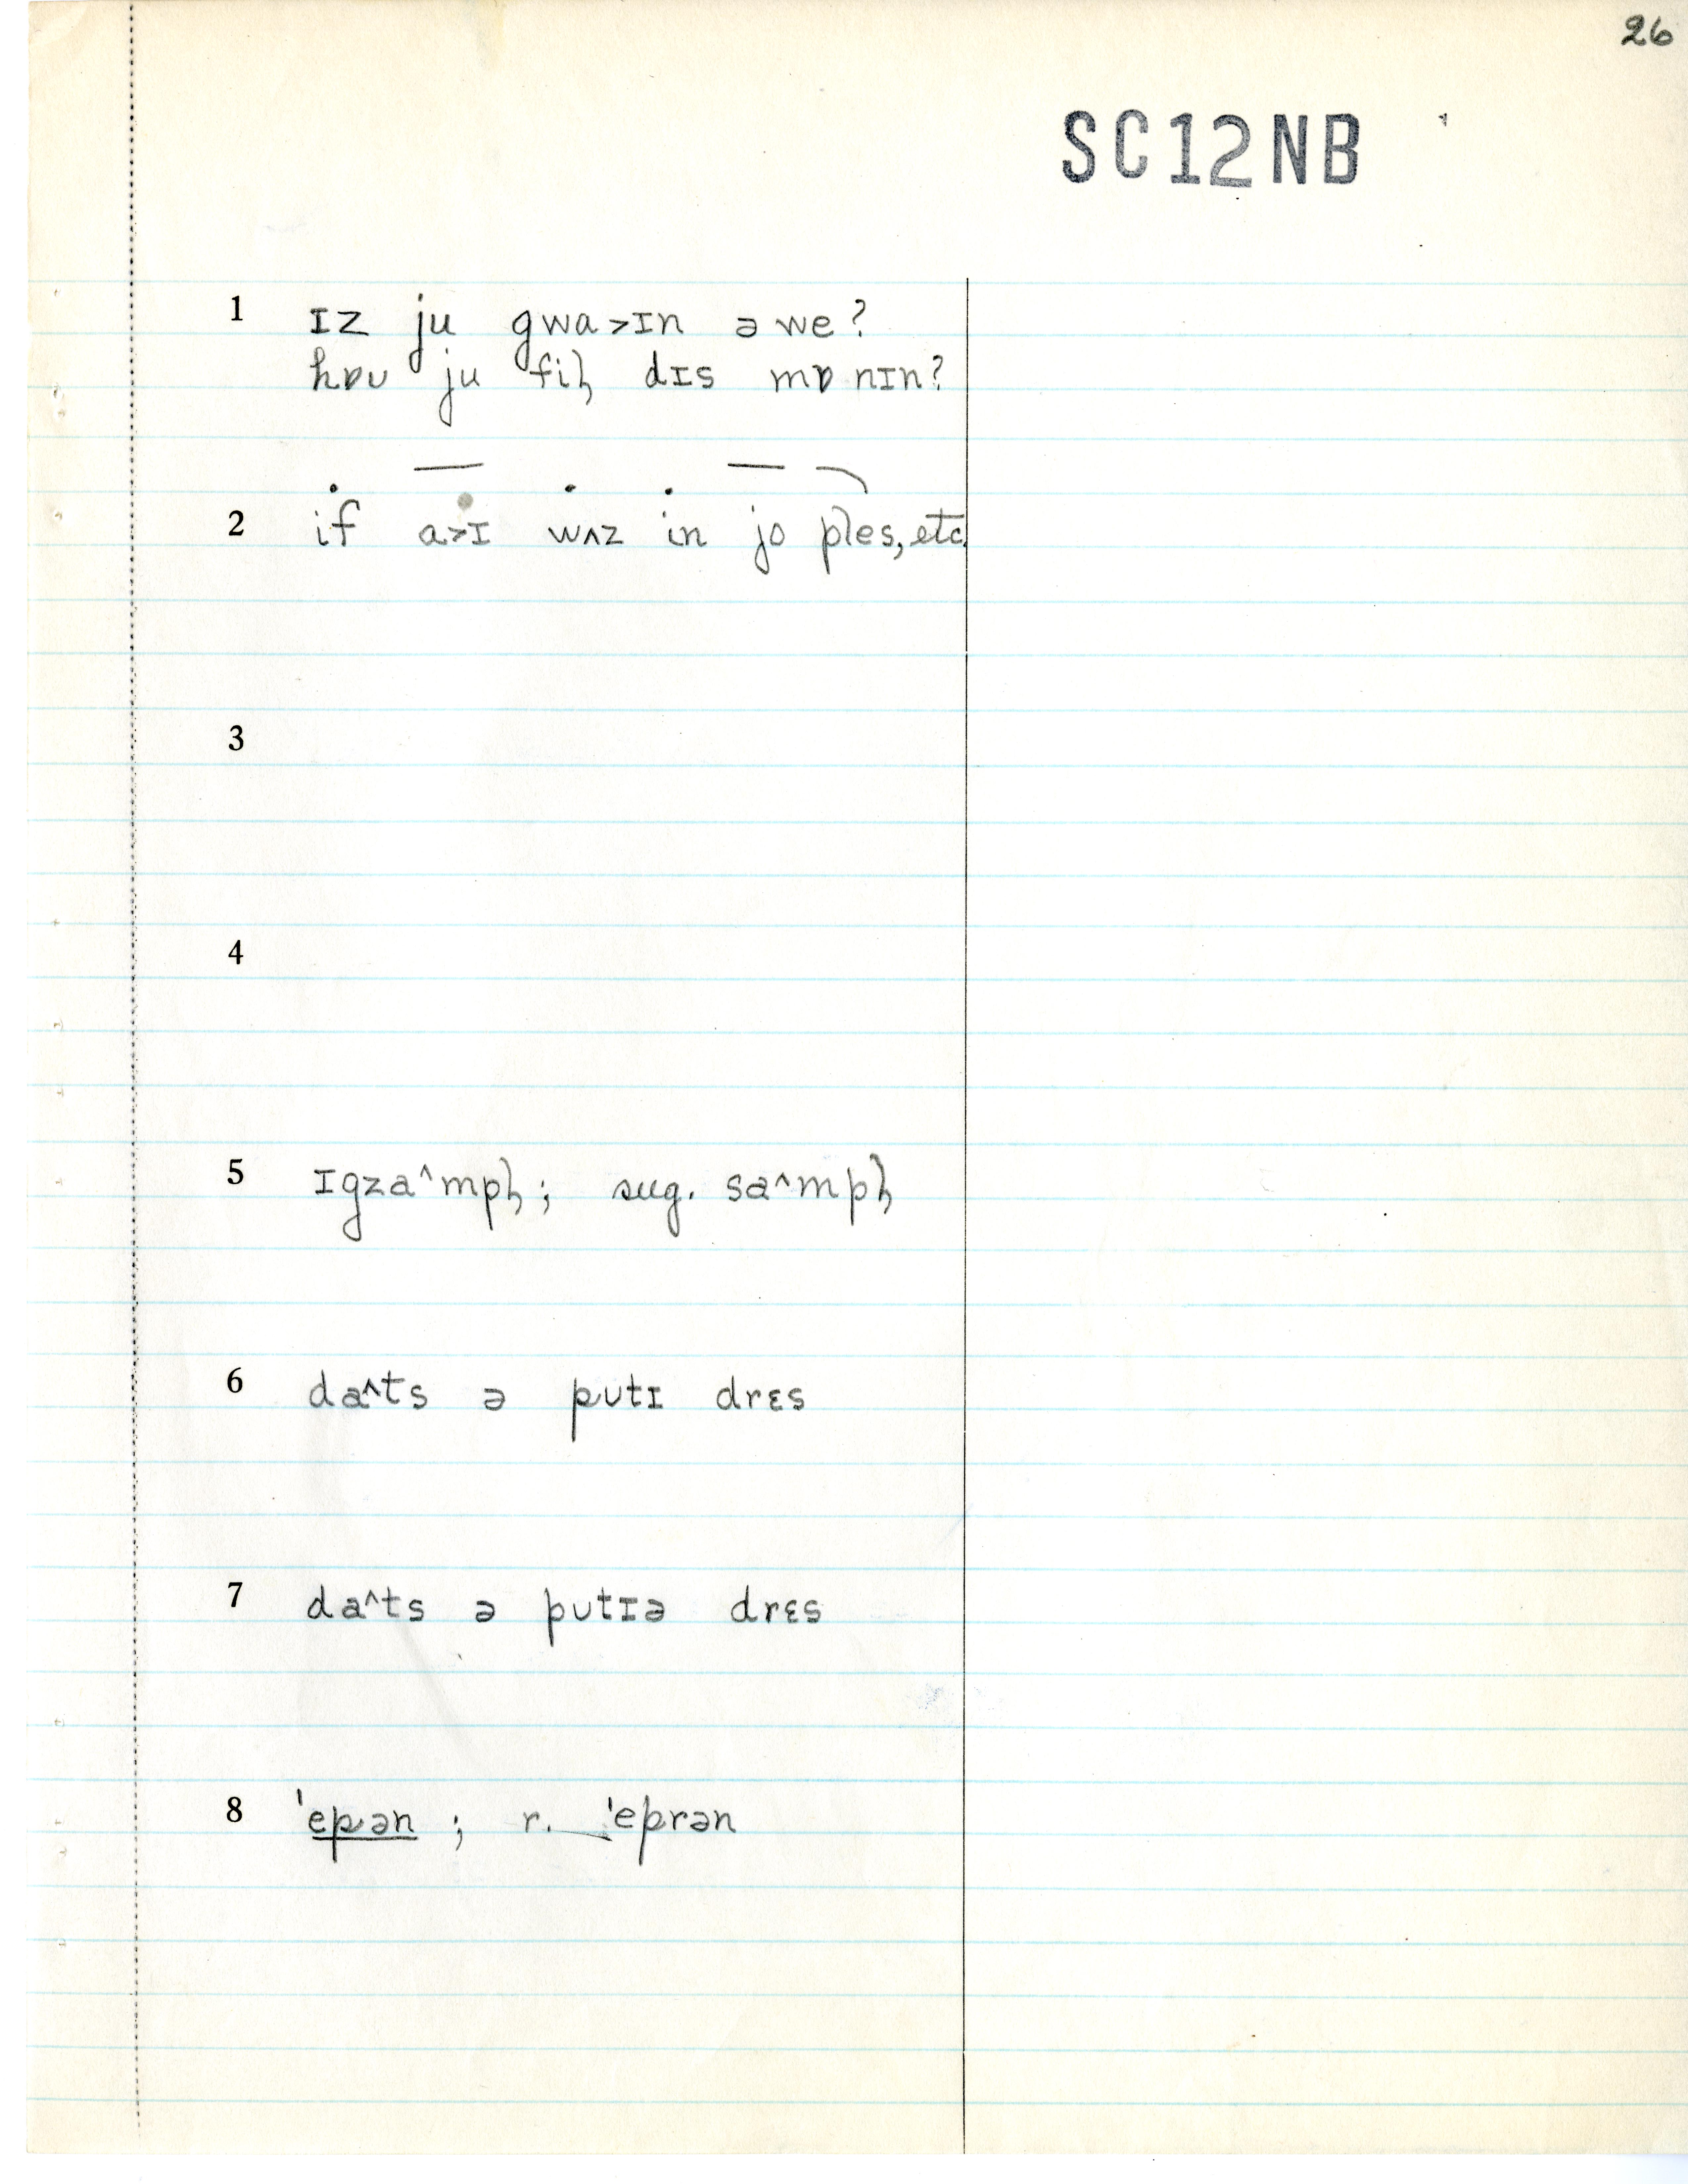 26
SC12NB
1 ɪz ju gwa˃ɪn ə we?
hɒʊ ju fiɫ dɪs mɒnɪn?
2 if a˃ɪ wʌz in jo ples, etc.
3
4
5 ɪgza^mpɫ; sug. sa^mpɫ
6 da^ts ə pʊtɪ drɛs
7 da^ts ə pʊtɪə drɛs
8 'epən ; r. 'eprən